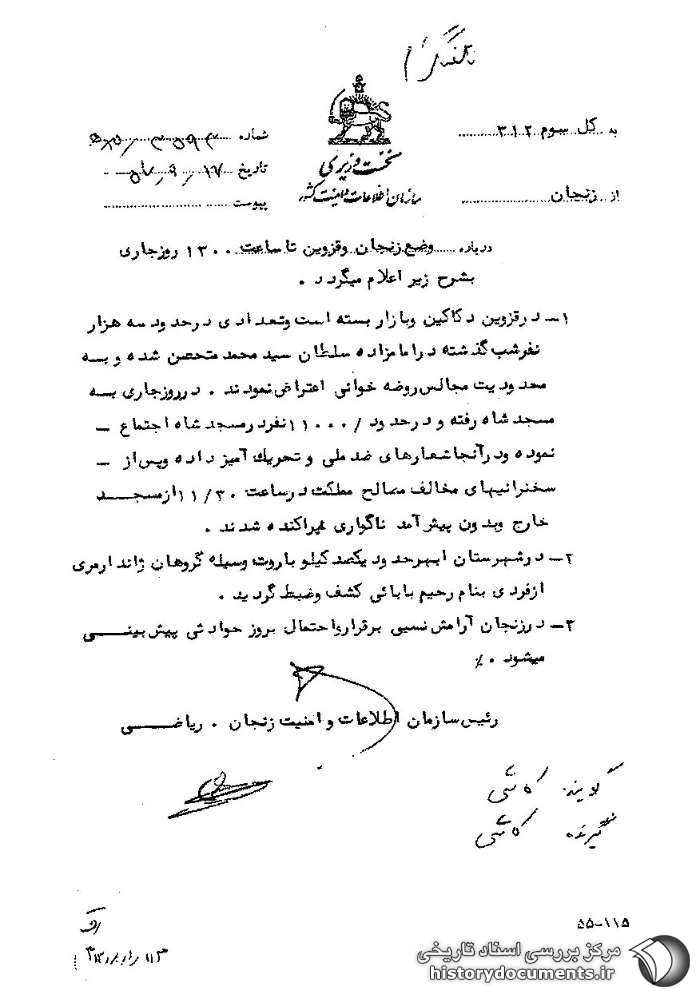 تلفنگرام
به کل سوم ۳۱۲
شماره
نخست وزیری
تاریخ ۱۷/ ۹/ ۵۷
از زنجان
سازمان اطلاعات و امنیت کشور
پیوست
درباره وضع زنجان وقزوین تا ساعت ۱۳۰۰ روزجاری
بشرح زیر اعلام میگردد .
۱- درقزوین دکاکین وبازار بسته است وتعدادی درحدود سه هزار
نفرشب گذشته درامامزاده سلطان سید محمد متحصن شده و به
محدودیت مجالس روضه خوانی اعتراض نمودند . درروزجاری به
مسجد شاه رفته و درحدود /۱۱۰۰۰نفردرمسجد شاه اجتماع -
نموده ودرآنجا شعارهای ضد ملی و تحریك آمیز داده وپس از -
سخنرانیهای مخالف مصالح مملکت درساعت ۱۱/۳۰ ازمسجد
خارج وبدون پیش آمد ناگواری متفرق شدند .
۲- درشهرستان ابهرحدود یکصد کیلو باروت وسیله گروهان ژاندارمری
ازفردی بنام رحیم بابائی کشف وضبط گردید .
۳- درزنجان آرامش نسبی برقرارواحتمال بروز حوادثی پیش بینی
میشود ۰٪
رئیس سازمان اطلاعات و امنیت زنجان . ریاضی
گوینده کاشی
گیرنده کاشی
۵۵-۱۱۵
مرکز بررسی اسناد تاریخی
historydocuments.ir